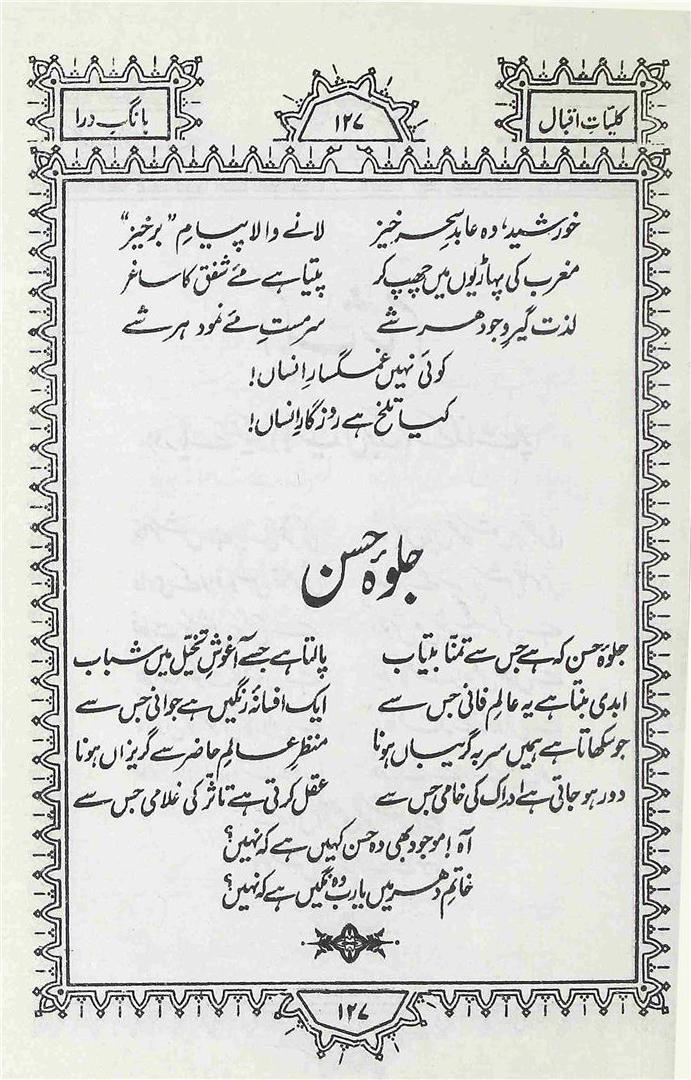 کلیاتِ اقبال ۱۲۷ بانگِ درا
خورشید، وہ عابدِ سحر خیز لانے والا پیامِ ”برخیز“
مغرب کی پہاڑیوں میں چھپ کر پیتا ہے مئے شفق کا ساغر
لذت گیرِ وجود ہر شے سرمستِ مئے نمود ہر شے
کوئی نہیں غمگسارِ انساں!
کیا تلخ ہے روزگارِ انساں!
جلوۂ حسن
جلوۂ حسن کہ ہے جس سے تمنّا بیتاب پالتا ہے جسے آغوشِ تخیّل میں شباب
ابدی بنتا ہے یہ عالمِ فانی جس سے ایک افسانۂ رنگیں ہے جوانی جس سے
جو سکھاتا ہے ہمیں سر بہ گریباں ہونا منظرِ عالمِ حاضر سے گریزاں ہونا
دور ہو جاتی ہے ادراک کی خامی جس سے عقل کرتی ہے تاثّر کی غلامی جس سے
آہ! موجود بھی وہ حسن کہیں ہے کہ نہیں؟
خاتمِ دہر میں یارب وہ نگیں ہے کہ نہیں؟
۱۲۷